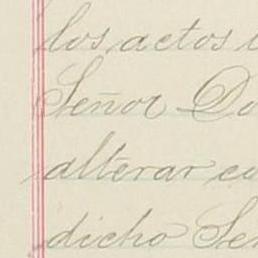 los actos
Señor Do
alterar
dicho Se